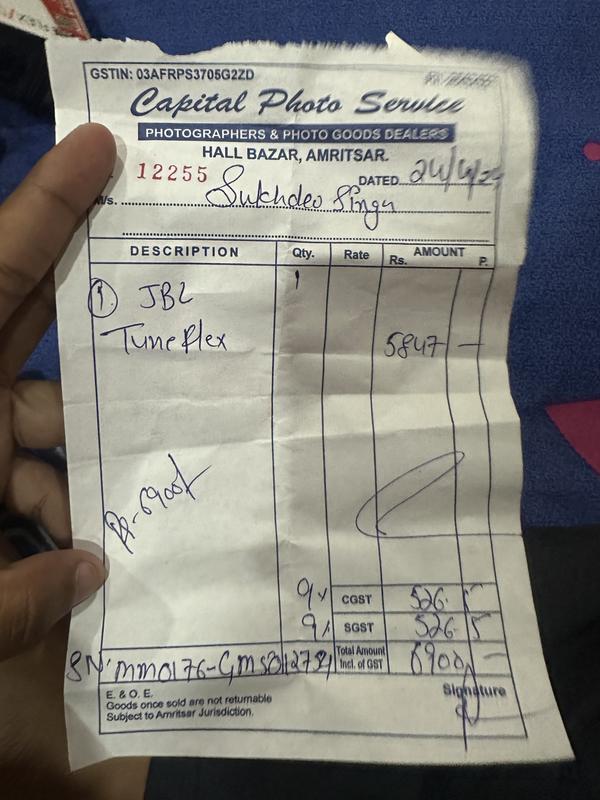 GSTIN: 03AFRPS3705G2ZD
Capital Photo Service
PHOTOGRAPHERS & PHOTO GOODS DEALERS
HALL BAZAR, AMRITSAR.
12255 DATED
M/s. Sukhdev Singh
DESCRIPTION Qty. Rate AMOUNT
Rs. P.
① JBL 1
Tune Flex 5847 —
6900/
9% CGST 526. 5
9% SGST 526. 5
Total Amount Incl. of GST 6900 —
E. & O. E.
Signature
Goods once sold are not returnable
Subject to Amritsar Jurisdiction.